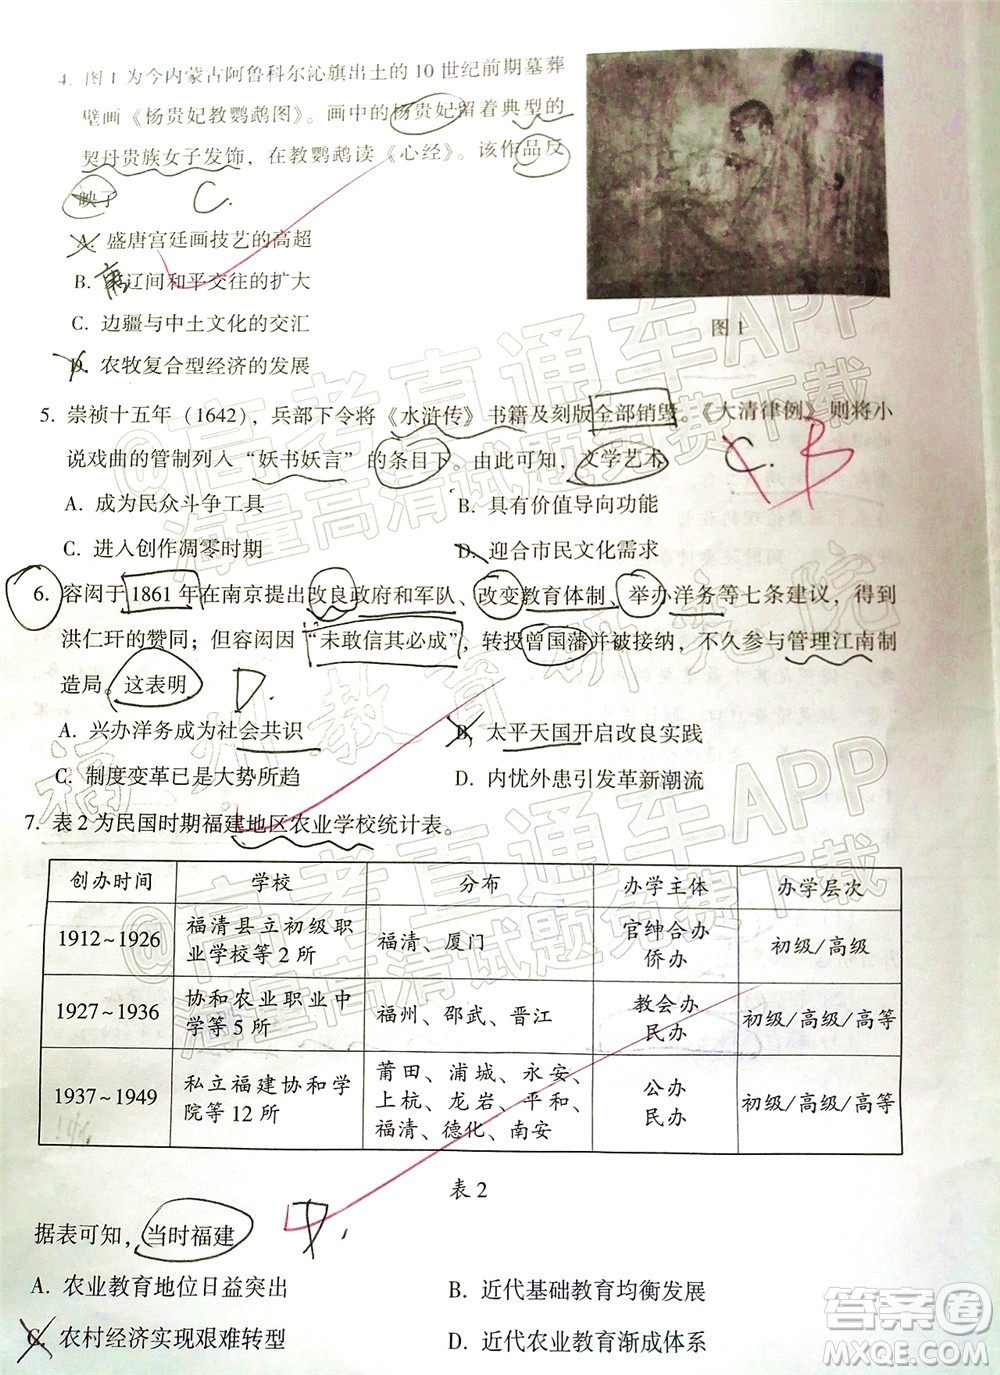 4. 图1为今内蒙古阿鲁科尔沁旗出土的10世纪前期墓葬
壁画《杨贵妃教鹦鹉图》。画中的杨贵妃留着典型的
契丹贵族女子发饰，在教鹦鹉读《心经》。该作品反
映了
C.
A. 盛唐宫廷画技艺的高超
B. 唐辽间和平交往的扩大
C. 边疆与中土文化的交汇
D. 农牧复合型经济的发展
图1
5. 崇祯十五年（1642），兵部下令将《水浒传》书籍及刻版全部销毁，《大清律例》则将小
说戏曲的管制列入“妖书妖言”的条目下。由此可知，文学艺术
C. B
A. 成为民众斗争工具 B. 具有价值导向功能
C. 进入创作凋零时期 D. 迎合市民文化需求
6. 容闳于1861年在南京提出改良政府和军队、改变教育体制、举办洋务等七条建议，得到
洪仁玕的赞同；但容闳因“未敢信其必成”，转投曾国藩并被接纳，不久参与管理江南制
造局。这表明
D.
A. 兴办洋务成为社会共识 B. 太平天国开启改良实践
C. 制度变革已是大势所趋 D. 内忧外患引发革新潮流
7. 表2为民国时期福建地区农业学校统计表。
创办时间 学校 分布 办学主体 办学层次
1912~1926 福清县立初级职业学校等2所 福清、厦门 官绅合办 侨办 初级/高级
1927~1936 协和农业职业中学等5所 福州、邵武、晋江 教会办 民办 初级/高级/高等
1937~1949 私立福建协和学院等12所 莆田、浦城、永安、上杭、龙岩、平和、福清、德化、南安 公办 民办 初级/高级/高等
表2
据表可知，当时福建
D.
A. 农业教育地位日益突出 B. 近代基础教育均衡发展
C. 农村经济实现艰难转型 D. 近代农业教育渐成体系
@高考直通车APP
海量高清试题免费下载
福州教育研究院
@高考直通车APP
海量高清试题免费下载
答案圈
MXQE.COM